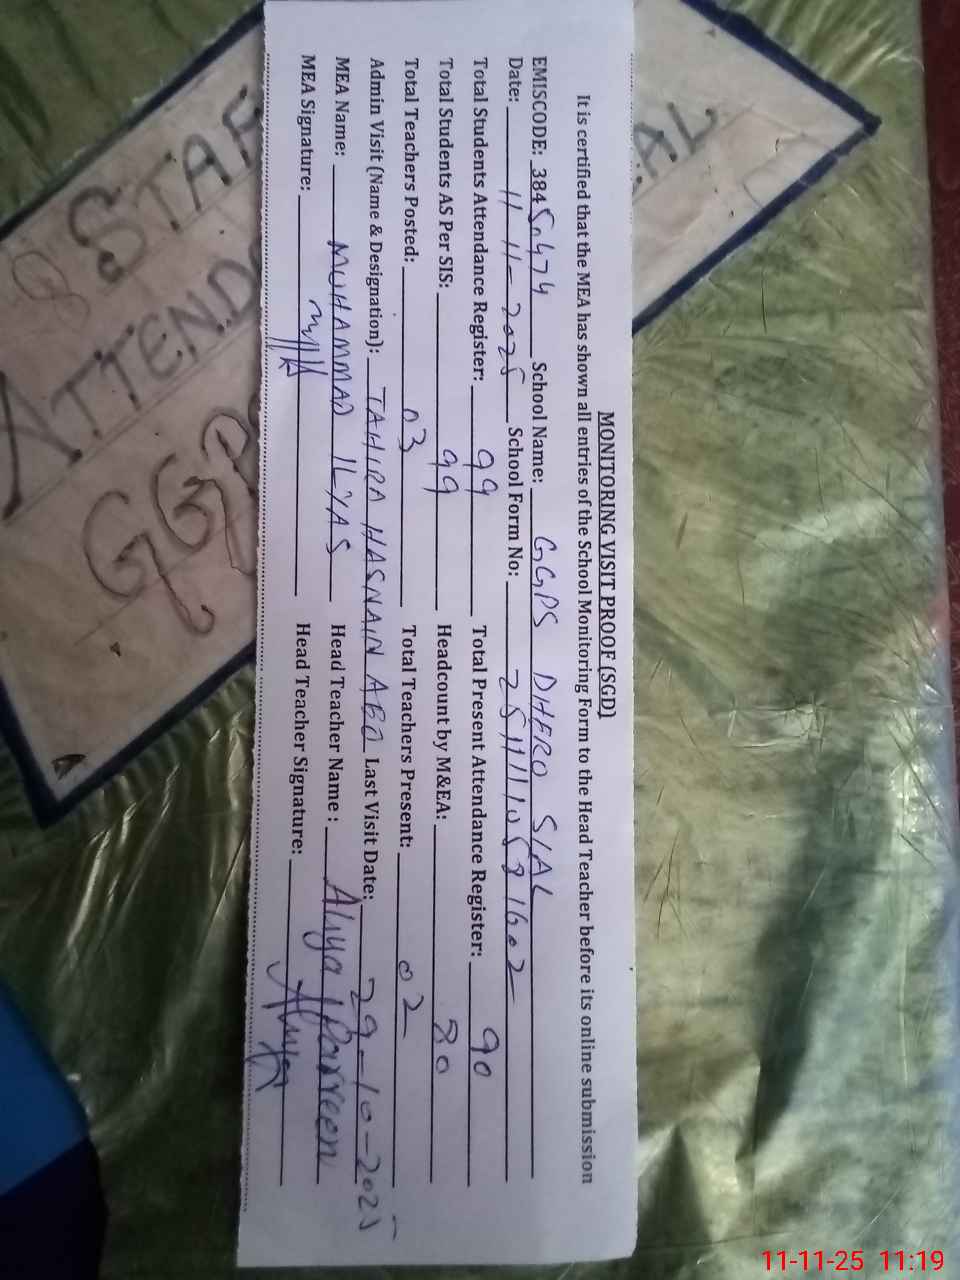 MONITORING VISIT PROOF (SGD)
It is certified that the MEA has shown all entries of the School Monitoring Form to the Head Teacher before its online submission
EMISCODE: 38450474 School Name: GGPS DHERO SIAL
Date: 11-11-2025 School Form No: 2511110581602
Total Students Attendance Register: 99 Total Present Attendance Register: 90
Total Students AS Per SIS: 99 Headcount by M&EA: 80
Total Teachers Posted: 03 Total Teachers Present: 02
Admin Visit (Name & Designation): TAHIRA HASNAIN AEO Last Visit Date: 29-10-2025
MEA Name: MUHAMMAD ILYAS Head Teacher Name : Aliya Parveen
MEA Signature: Head Teacher Signature: Aliya
STAF
ATTEND
GGP
AL
11-11-25 11:19